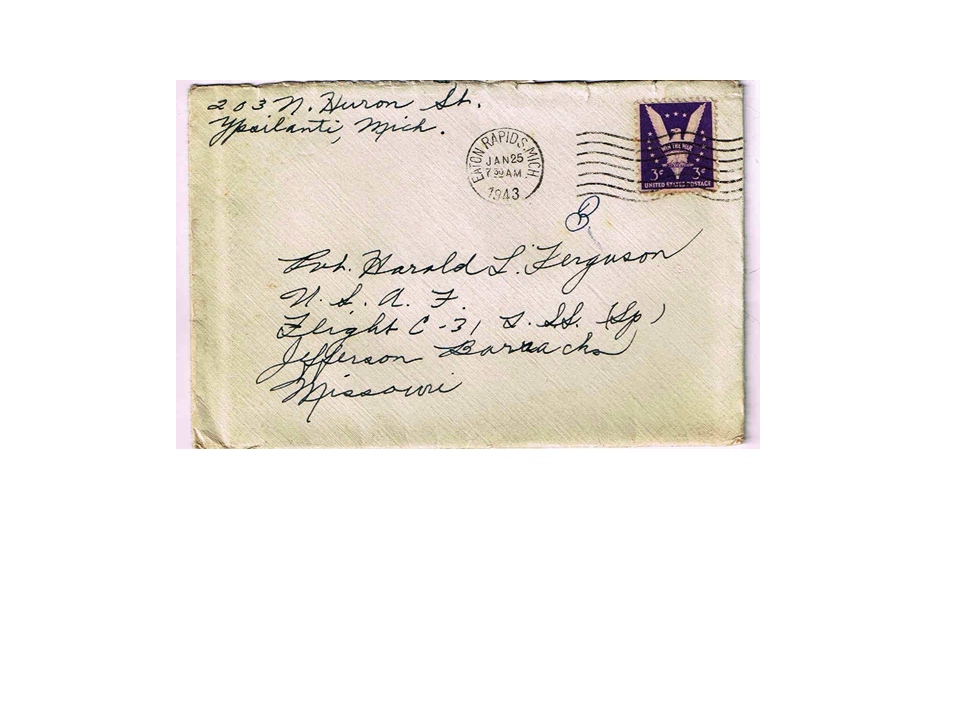 203 N. Huron St.
Ypsilanti, Mich.
EATON RAPIDS, MICH.
JAN 25
7 30 AM
1943
WIN THE WAR
3¢ 3¢
UNITED STATES POSTAGE
B
Pvt. Harald L. Ferguson
U. S. A. F.
Flight C-31 T. SS. (Sp)
Jefferson Barracks
Missouri